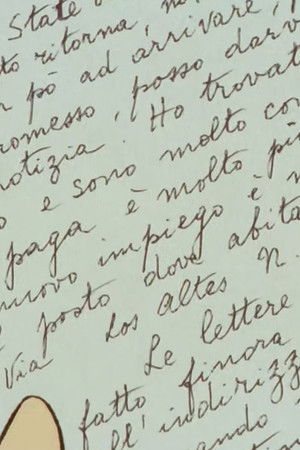 State
to ritorna, no
pò ad arrivare,
romesso, posso darv
notizia. Ho trovat
e sono molto co
paga è molto pi
nuovo impiego è
posto dove abita
Via Los Altes N.
Le lettere
fatto finora
ll'indirizz
ando